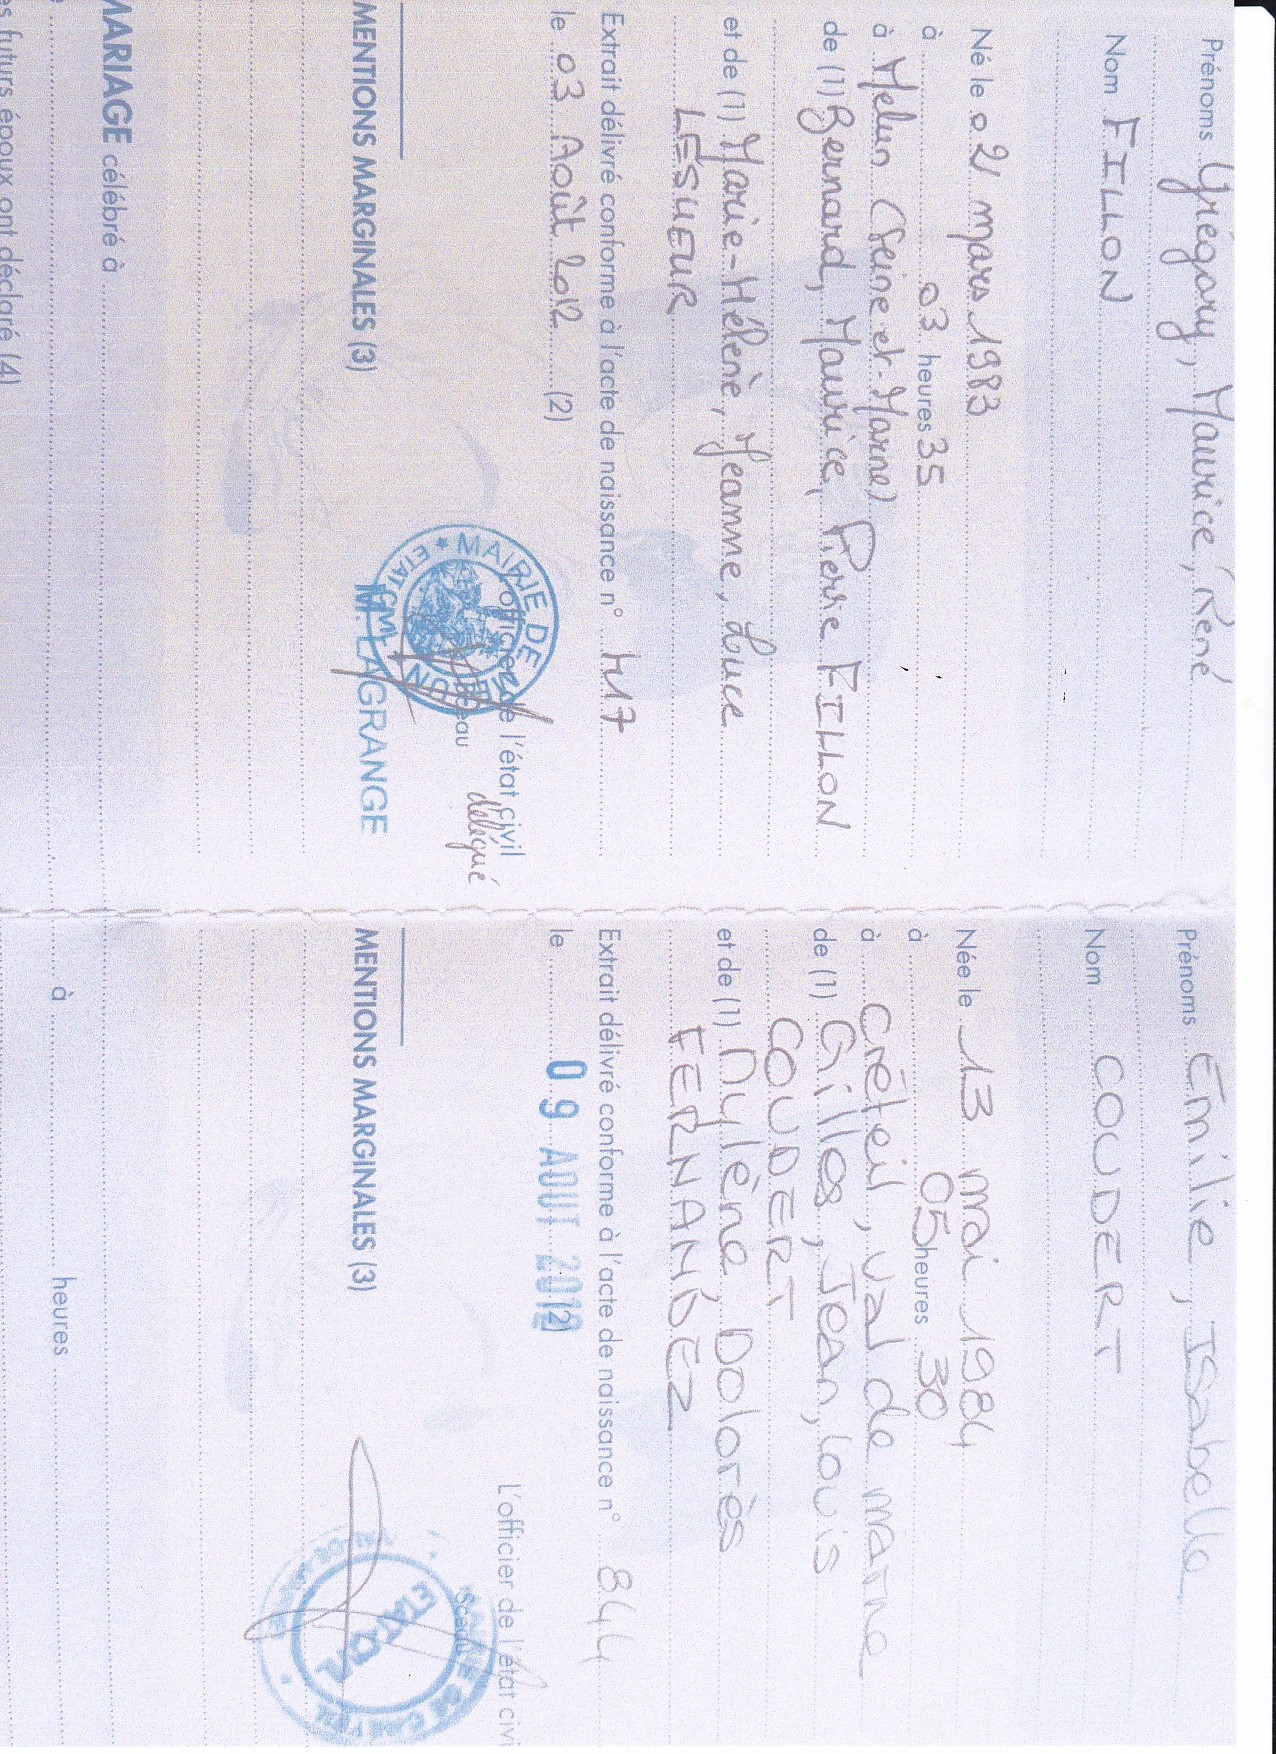 Prénoms Grégory, Maurice, René
Nom FILLON
Né le 02 mars 1983
à 03 heures 35
à Melun (Seine-et-Marne)
de (1) Bernard, Maurice, Pierre FILLON
et de (1) Marie-Hélène, Jeanne, Luce
LESUEUR
Extrait délivré conforme à l'acte de naissance n° 417
le 03 Août 2012 (2)
L'officier de l'état civil
délégué
Sceau
MAIRIE DE MELUN
ETAT CIVIL
M. LAGRANGE
MENTIONS MARGINALES (3)
MARIAGE célébré à
es futurs époux ont déclaré (4)
Prénoms Emilie, Isabelle
Nom COUDERT
Née le 13 mai 1984
à 05 heures 30
à Créteil, Val de Marne
de (1) Gilles, Jean, Louis
COUDERT
et de (1) Mylène, Dolorès
FERNANDEZ
Extrait délivré conforme à l'acte de naissance n° 844
le 09 AOUT 2012 (2)
L'officier de l'état civi
Sceau
MAIRIE DE CRETEIL
ETAT CIVIL
MENTIONS MARGINALES (3)
à heures